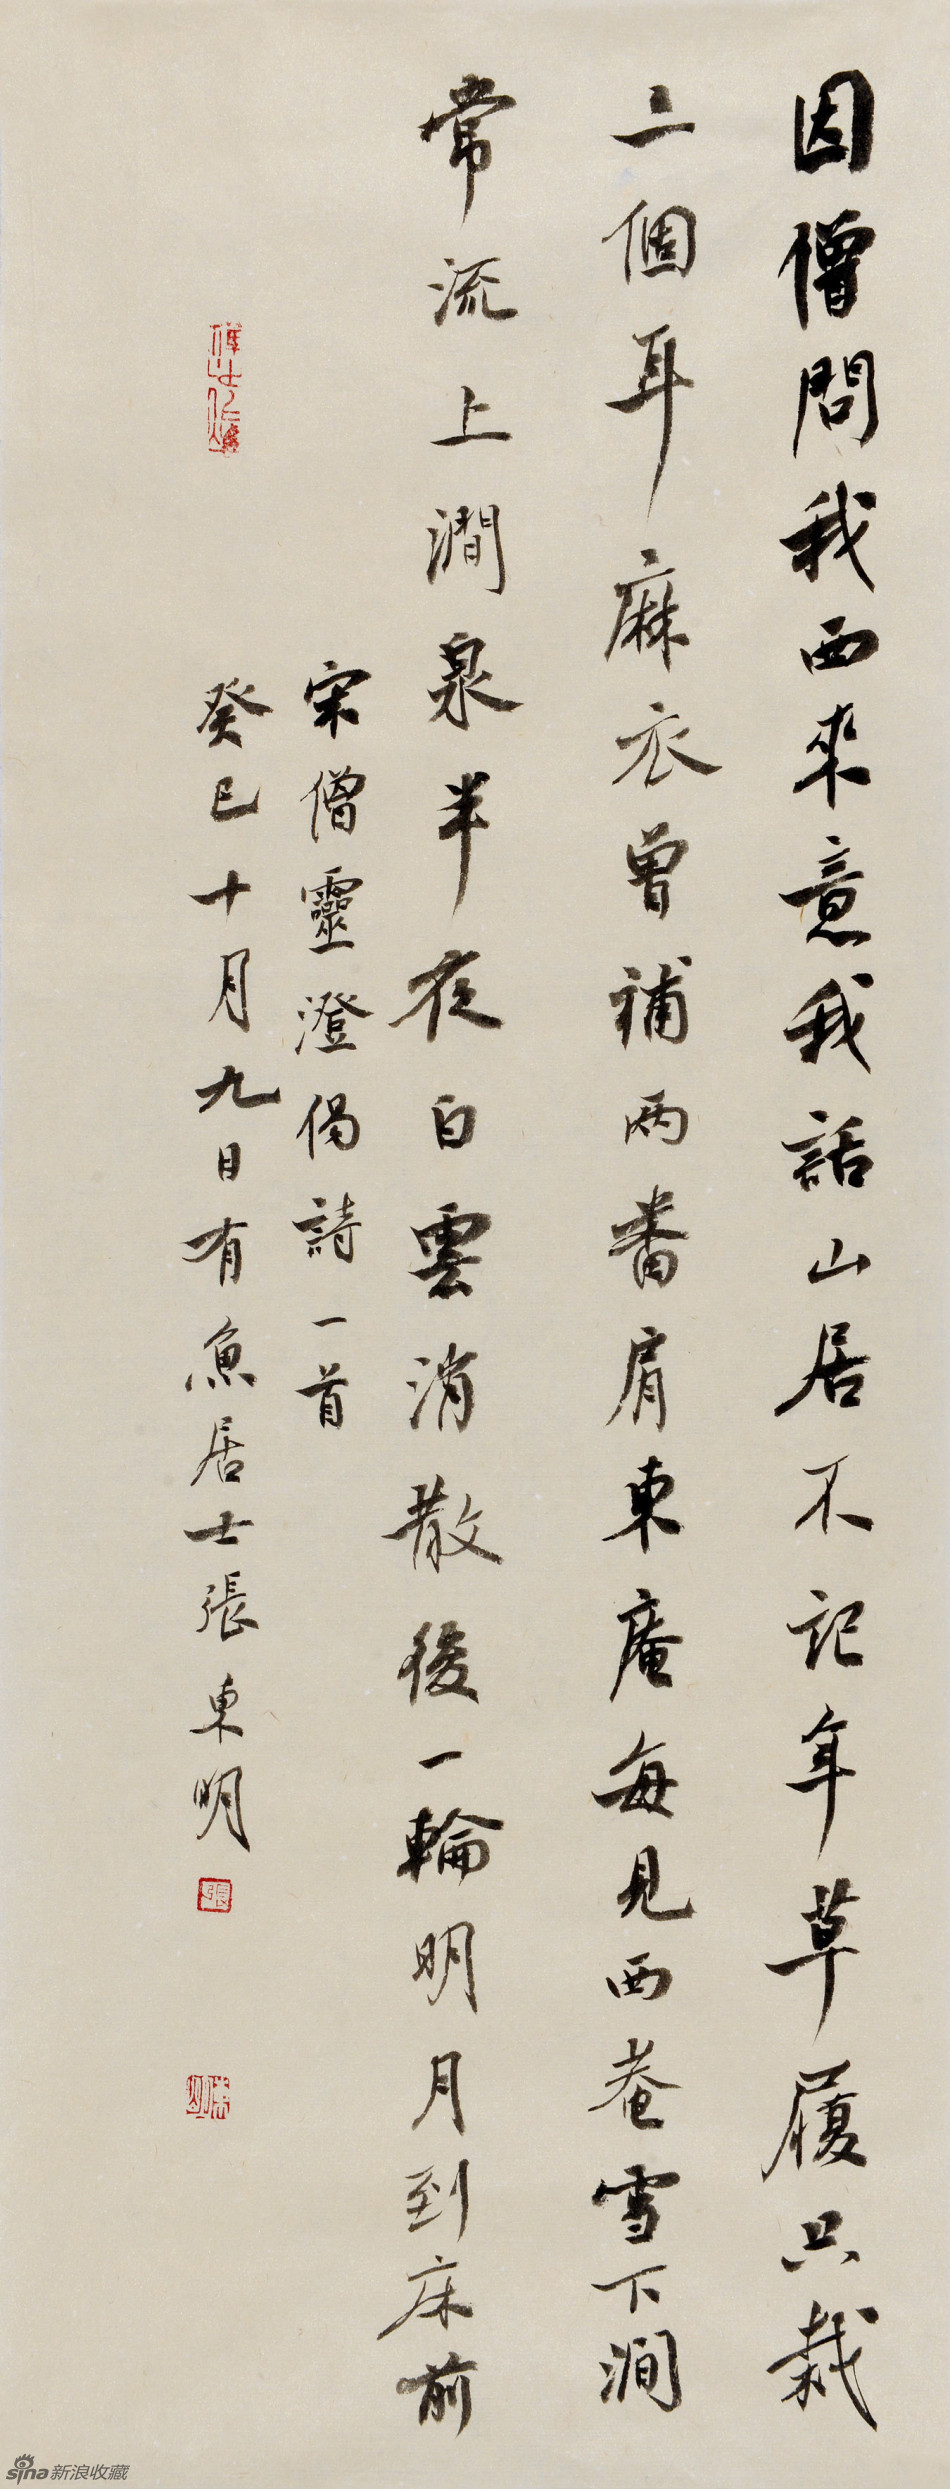 因僧問我西來意我話山居不記年草履只栽
二個耳麻衣曾補兩番肩東庵每見西菴雪下澗
常流上澗泉半夜白雲消散後一輪明月到床前
宋僧靈澄偈詩一首
癸巳十月九日有魚居士張東明
張
sina新浪收藏